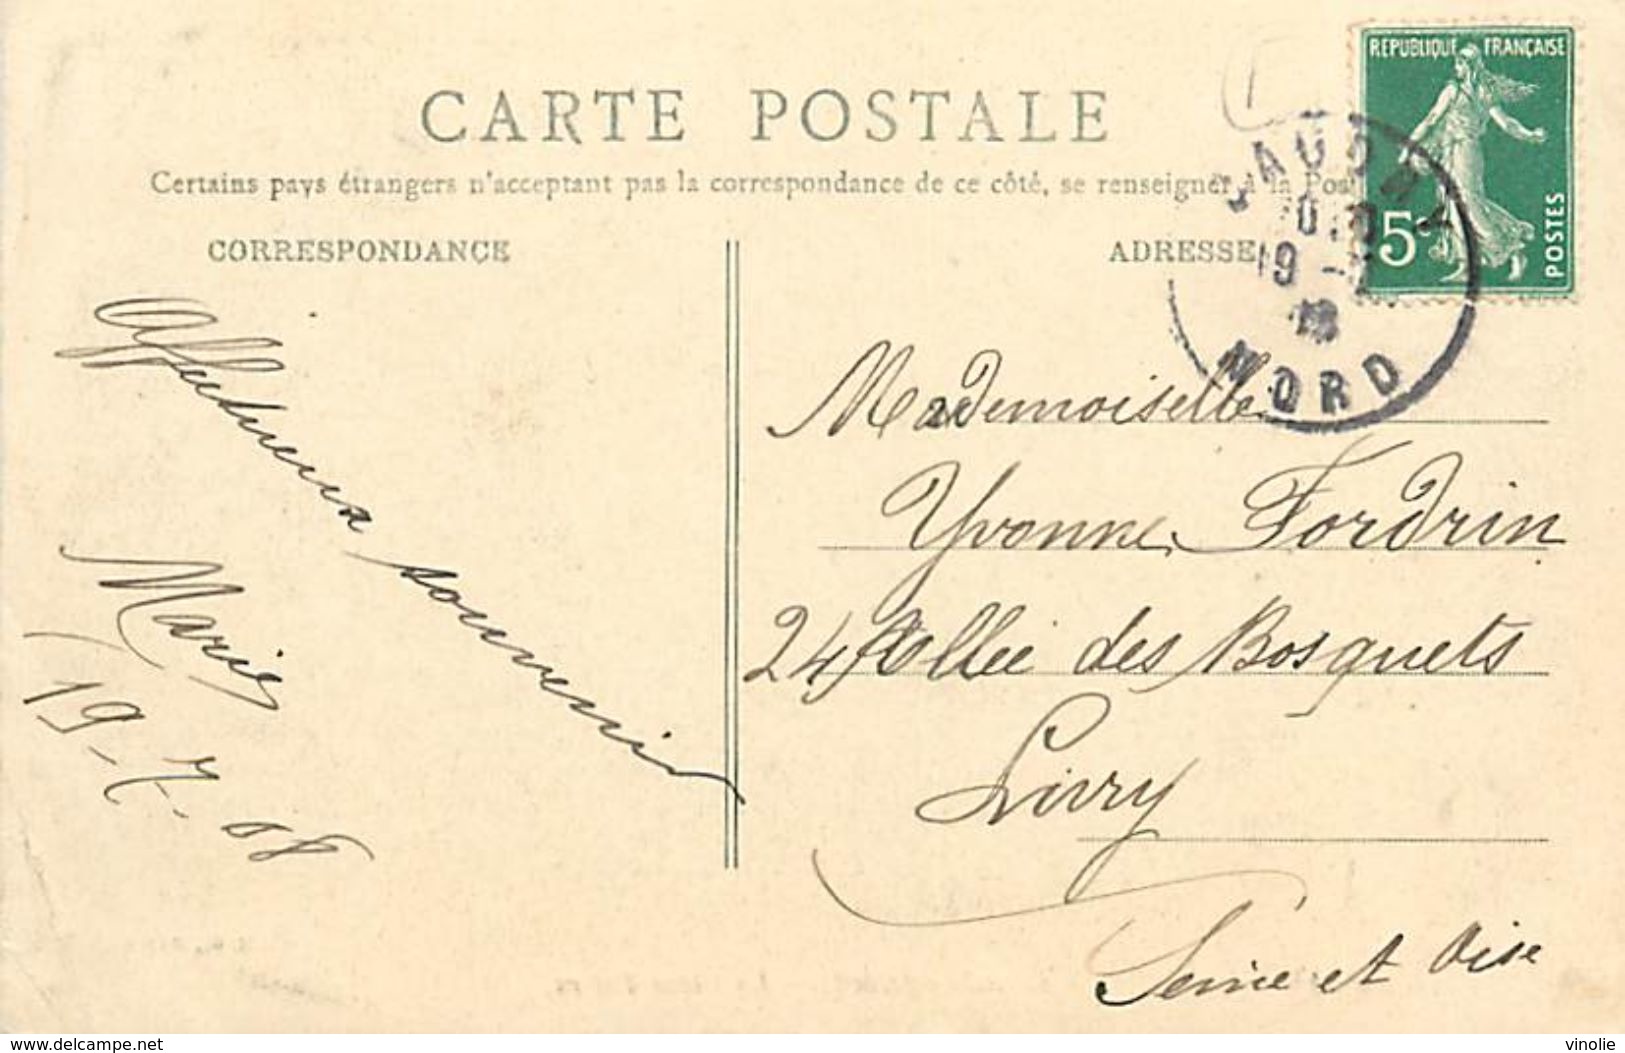 CARTE POSTALE
Certains pays étrangers n'acceptant pas la correspondance de ce côté, se renseigner à la Pos
CORRESPONDANCE
ADRESSE
REPUBLIQUE FRANÇAISE
5c
POSTES
19 - 7
NORD
Affectueux souvenir
Marie
19-7-08
Mademoiselle
Yvonne Fordrin
24 Allée des Bosquets
Livry
Seine et Oise
www.delcampe.net
vinolie